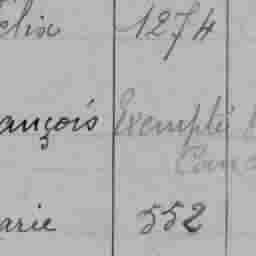 elix 1274
ançois Exempté
Con
arie 552